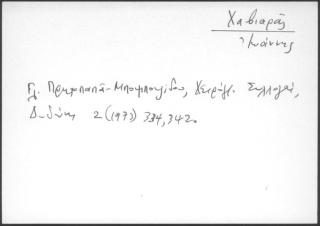 Χαβιαρᾶς
Ἰωάννης
Γλ. Πρωτοπαπᾶ-Μπουμπουλίδου, Χειρόγρ. Συλλογαί,
Δωδώνη 2 (1973) 334, 342.